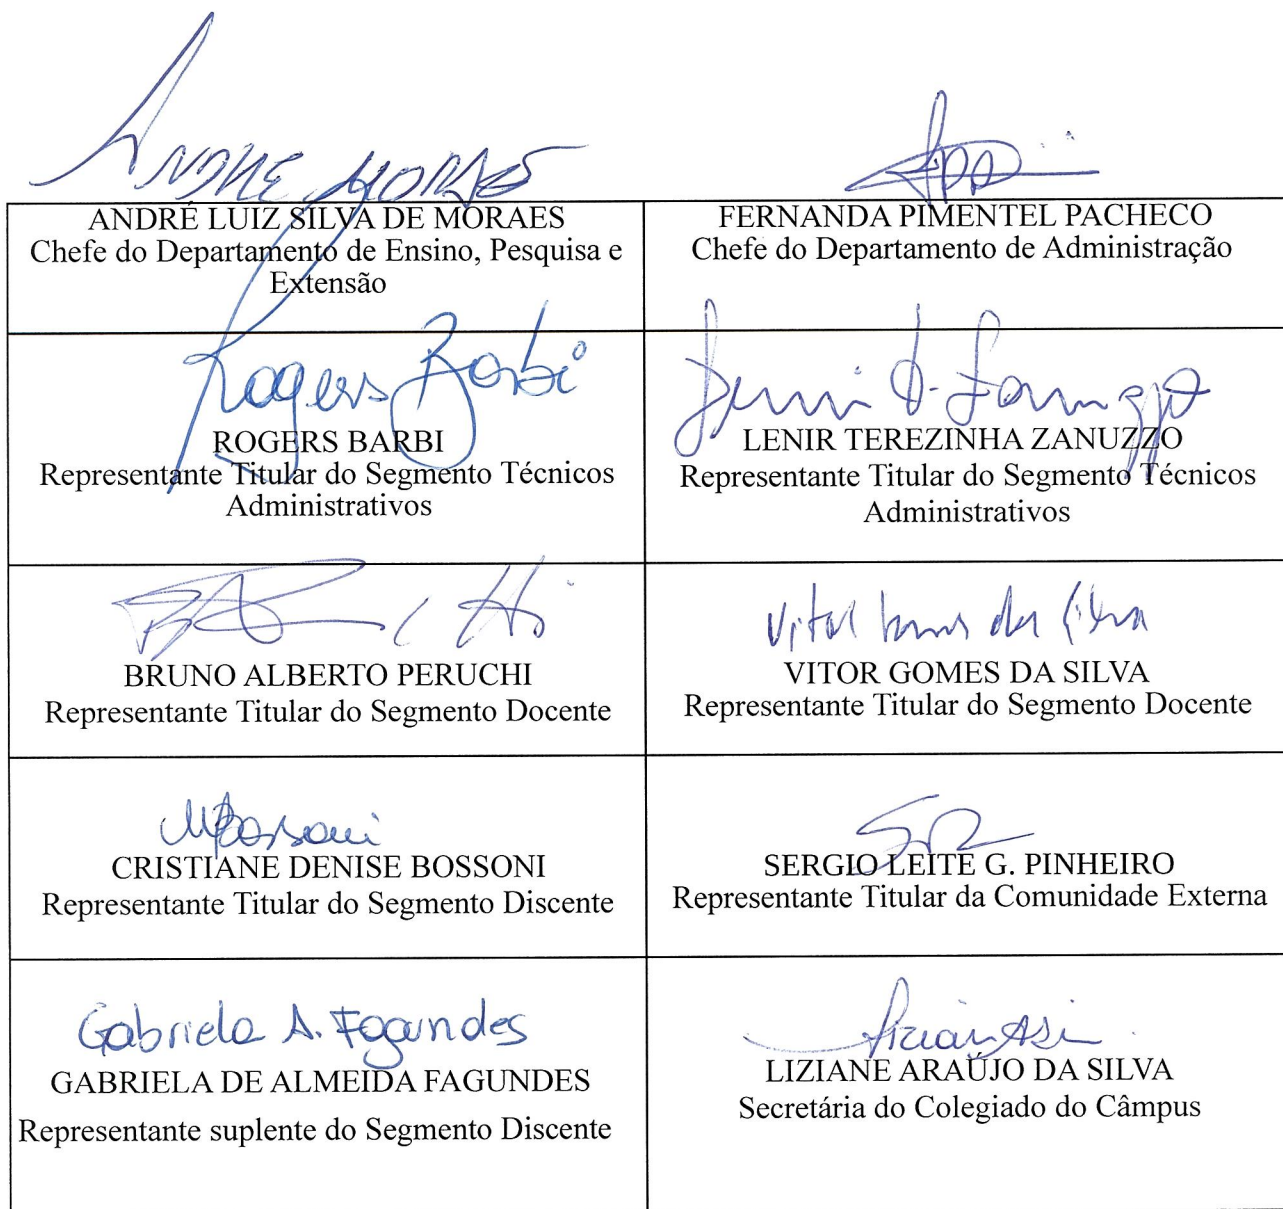 ANDRE MORAES
ANDRÉ LUIZ SILVA DE MORAES
Chefe do Departamento de Ensino, Pesquisa e
Extensão
FERNANDA PIMENTEL PACHECO
Chefe do Departamento de Administração
Rogers Barbi
ROGERS BARBI
Representante Titular do Segmento Técnicos
Administrativos
LENIR TEREZINHA ZANUZZO
Representante Titular do Segmento Técnicos
Administrativos
BRUNO ALBERTO PERUCHI
Representante Titular do Segmento Docente
Vitor Gomes da Silva
VITOR GOMES DA SILVA
Representante Titular do Segmento Docente
CRISTIANE DENISE BOSSONI
Representante Titular do Segmento Discente
SERGIO LEITE G. PINHEIRO
Representante Titular da Comunidade Externa
Gabriela A. Fagundes
GABRIELA DE ALMEIDA FAGUNDES
Representante suplente do Segmento Discente
LIZIANE ARAÚJO DA SILVA
Secretária do Colegiado do Câmpus